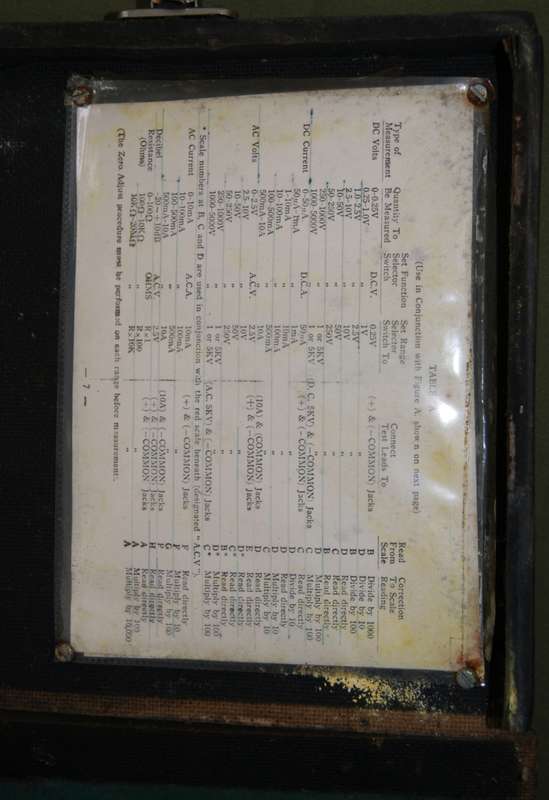 TABLE A
(Use in Conjunction with Figure A, shown on next page)
Type of Measurement Quantity To Be Measured Set Function Selector Switch Set Range Selector Switch To Connect Test Leads To Read From Scale Correction To Scale Reading
DC Volts 0–0.25V D.C.V. 0.25V (+) & (–COMMON) Jacks B Divide by 1000
0.25–1.0V " 1V " D Divide by 10
1.0–2.5V " 2.5V " B Divide by 100
2.5–10V " 10V " D Read directly
10–50V " 50V " C Read directly
50–250V " 250V " B Read directly
250–1000V " 1 or 5KV " D Multiply by 100
1000–5000V " 1 or 5KV (D.C. 5KV) & (–COMMON) Jacks C Multiply by 100
DC Current 0–50μA D.C.A. 50μA (+) & (–COMMON) Jacks C Read directly
50μA–1mA " 1mA " D Divide by 10
1–10mA " 10mA " D Read directly
10–100mA " 100mA " D Multiply by 10
100–500mA " 500mA " C Multiply by 10
500mA–10A " 10A (10A) & (COMMON) Jacks D Read directly
AC Volts 0–2.5V A.C.V. 2.5V (+) & (–COMMON) Jacks E Read directly
2.5–10V " 10V " D* Read directly
10–50V " 50V " C* Read directly
50–250V " 250V " B* Read directly
250–1000V " 1 or 5KV " D* Multiply by 100
1000–5000V " 1 or 5KV (A.C. 5KV) & (–COMMON) Jacks C* Multiply by 100
* Scale numbers at B, C and D are used in conjunction with the red scale beneath (designated "A.C.V.").
AC Current 0–10mA A.C.A. 10mA (+) & (–COMMON) Jacks F Read directly
10–100mA " 100mA " F Multiply by 10
100–500mA " 500mA " G Multiply by 100
500mA–10A " 10A (10A) & (–COMMON) Jacks F Read directly
Decibel –20–+10dB A.C.V. 2.5V (+) & (–COMMON) Jacks H Read directly
Resistance 0–100Ω OHMS R×1 (+) & (–COMMON) Jacks A Read directly
(Ohms) 100Ω–10KΩ " R×100 " A Multiply by 100
10KΩ–20MΩ " R×10K " A Multiply by 10,000
(The Zero Adjust procedure must be performed on each range before measurement).
— 7 —